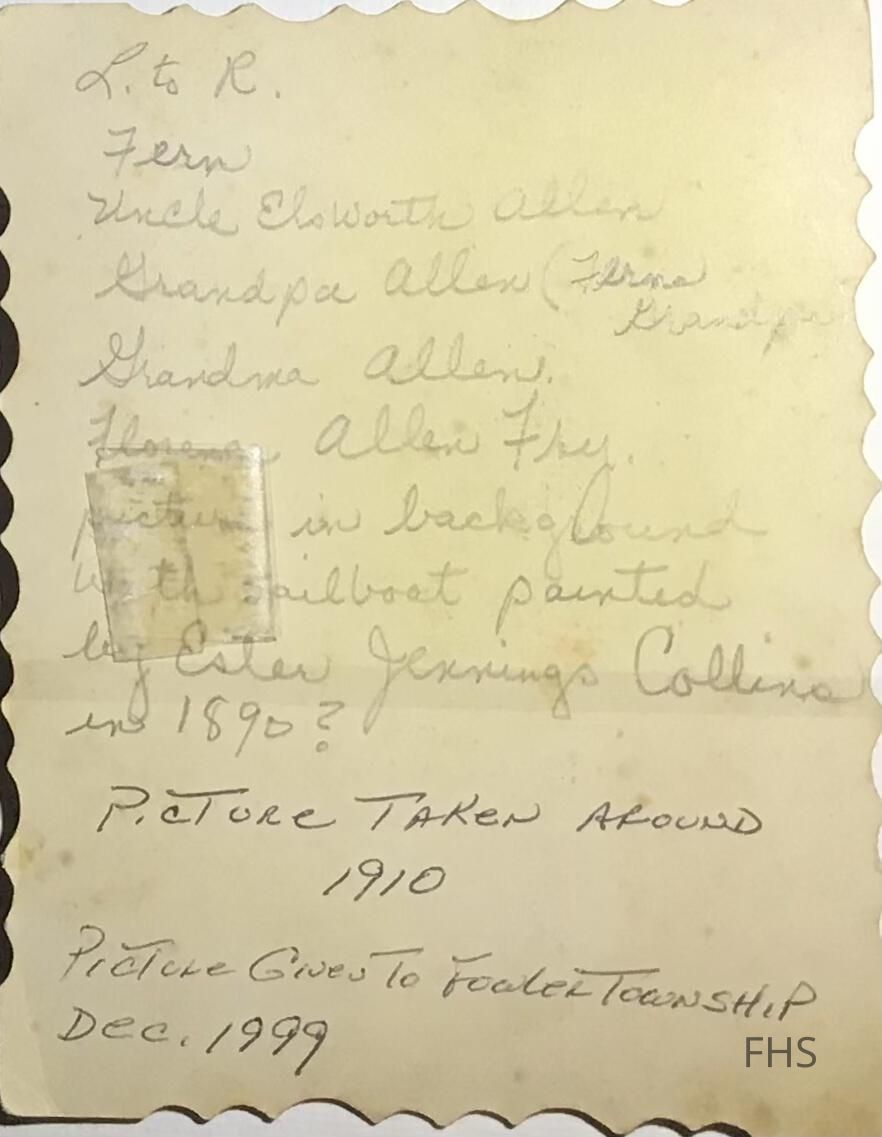 L. to R.
Fern
Uncle Elsworth Allen
Grandpa Allen (Ferns
Grandpa
Grandma Allen.
Allen Fry.
picture in background
with sailboat painted
by Ester Jennings Collins
in 1890?
PICTURE TAKEN AROUND
1910
PICTURE GIVEN TO FOWLER TOWNSHIP
DEC. 1999
FHS